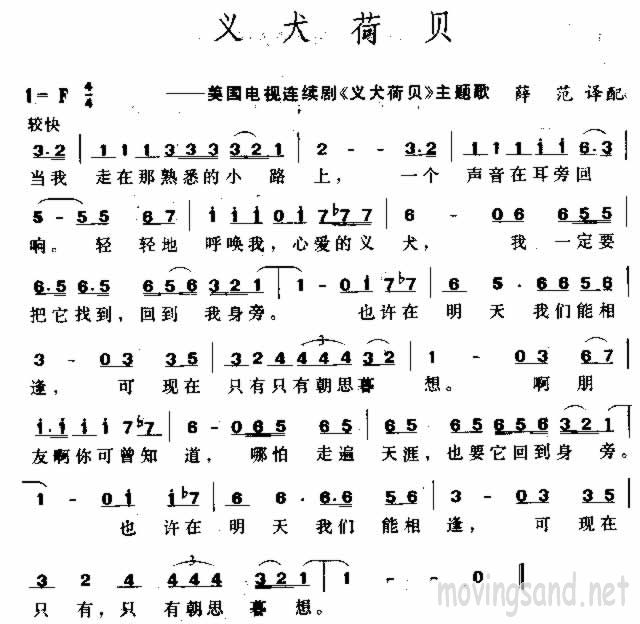 义犬荷贝
1=F 4/4 ——美国电视连续剧《义犬荷贝》主题歌 薛 范 译配
较快
3·2 | 1 1 1 3 3 3 3 2 1 | 2 - - 3·2 | 1 1 1 1 i i 6·3 |
当我 走在那熟悉的小 路 上， 一个 声音在耳旁回
5 - 5 5 6 7 | i i i 0 i 7♭7 7 | 6 - 0 6 6 5 5 |
响。 轻 轻地 呼唤我，心爱的义 犬， 我 一定要
6·5 6·5 6 5 6 3 2 1 | 1 - 0 i 7♭7 | 6 5 · 6 6 5 6 |
把它找到，回到 我身旁。 也许在 明 天 我们能相
3 - 0 3 3 5 | 3 2 4 4 4 4 3 2 | 1 - 0 3 6 7 |
逢， 可 现在 只有只有朝思暮 想。 啊 朋
i·i i i 7♭7 | 6 - 0 6 5 6 5 | 6 5 5 6 5 6 5 6 3 2 1 |
友啊你可曾知 道， 哪怕 走遍 天涯，也要它回到身 旁。
1 - 0 i i♭7 | 6 6·6·6 5 6 | 3 - 0 3 3 5 |
也 许在 明 天 我们 能相 逢， 可 现在
3 2 4 4 4 4 3 2 1 | 1 - - 0 ‖
只 有，只 有朝思 暮 想。
movingsand.net